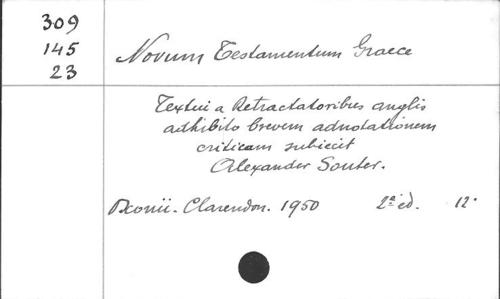 309
145
23
Novum Testamentum Graece
Textui a Retractatoribus anglis
adhibito brevem adnotationem
criticam subiecit
Alexander Souter.
Oxonii. Clarendon. 1950 2ª ed. 12º